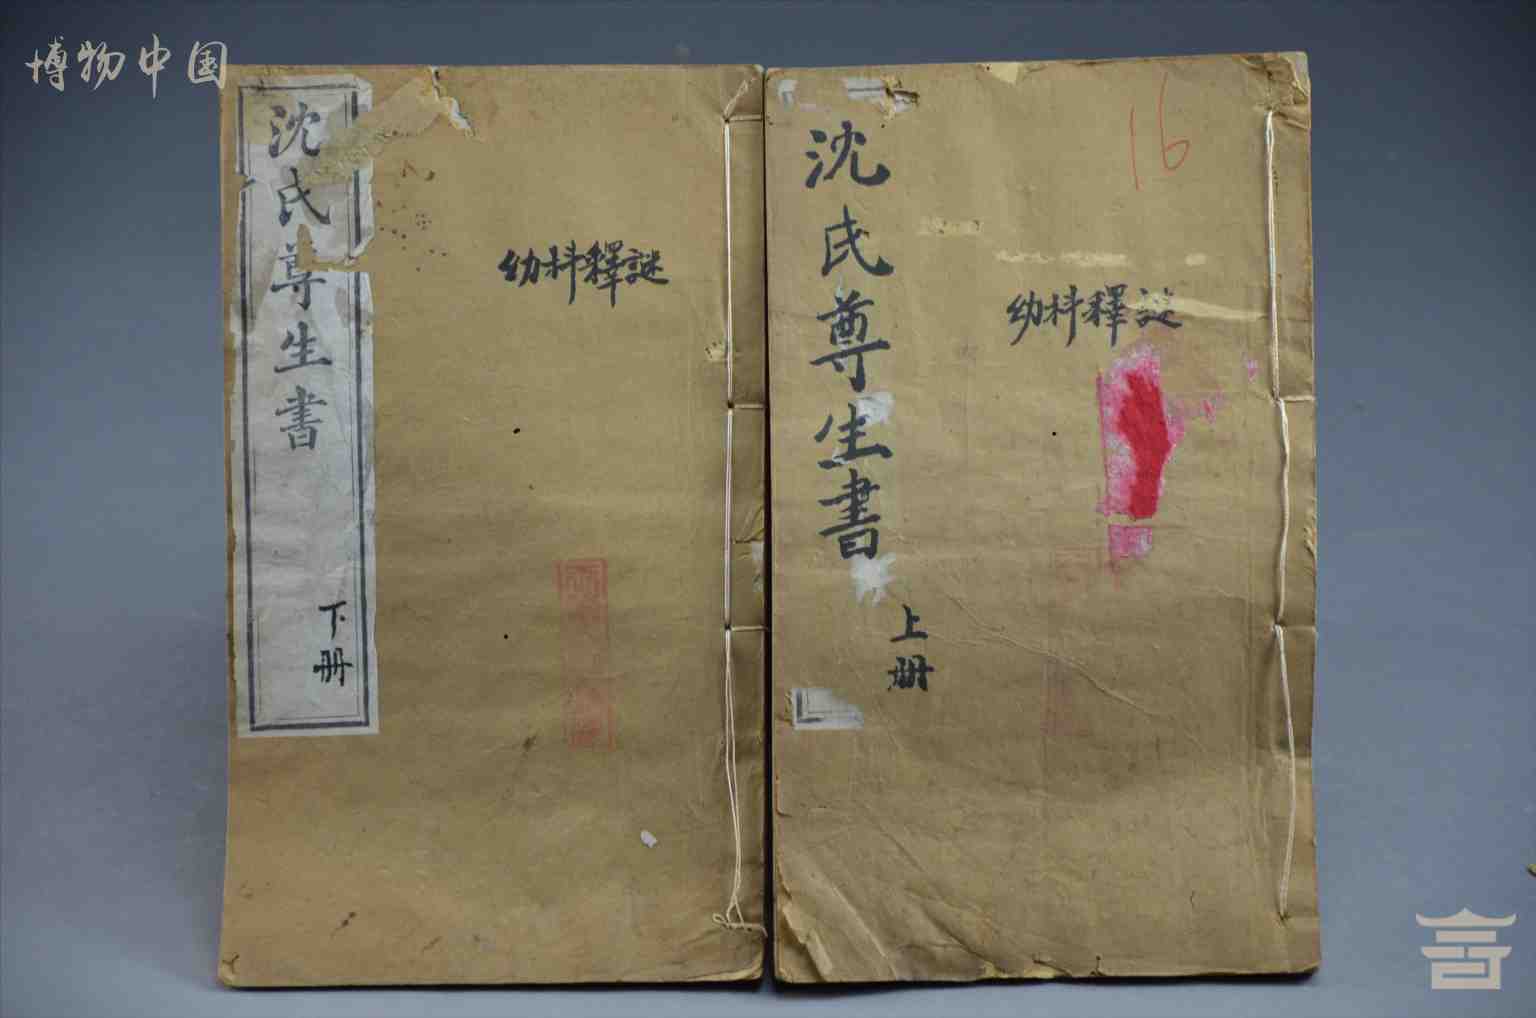 博物中国
沈氏尊生書
下册
幼科釋謎
沈氏尊生書
上册
幼科釋謎
16